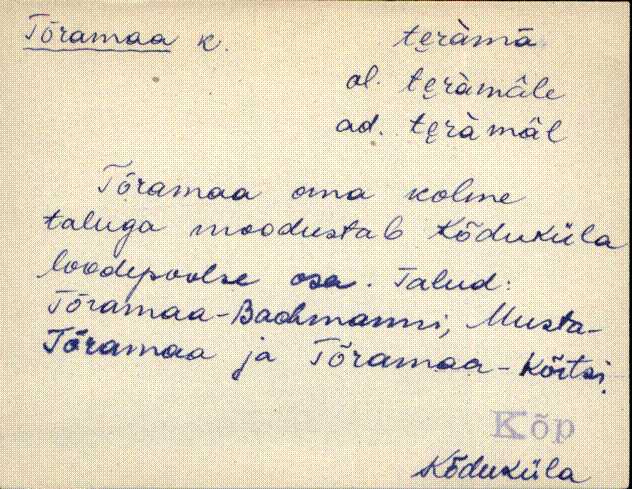 Tõramaa k. te̮ràmā
al. te̮ràmâle
ad. te̮ràmâl
Tõramaa oma kolme
taluga moodustab Kõduküla
loodepoolse osa. Talud:
Tõramaa-Bachmanni, Musta-
Tõramaa ja Tõramaa-Kõrtsi.
Kõp
Kõduküla